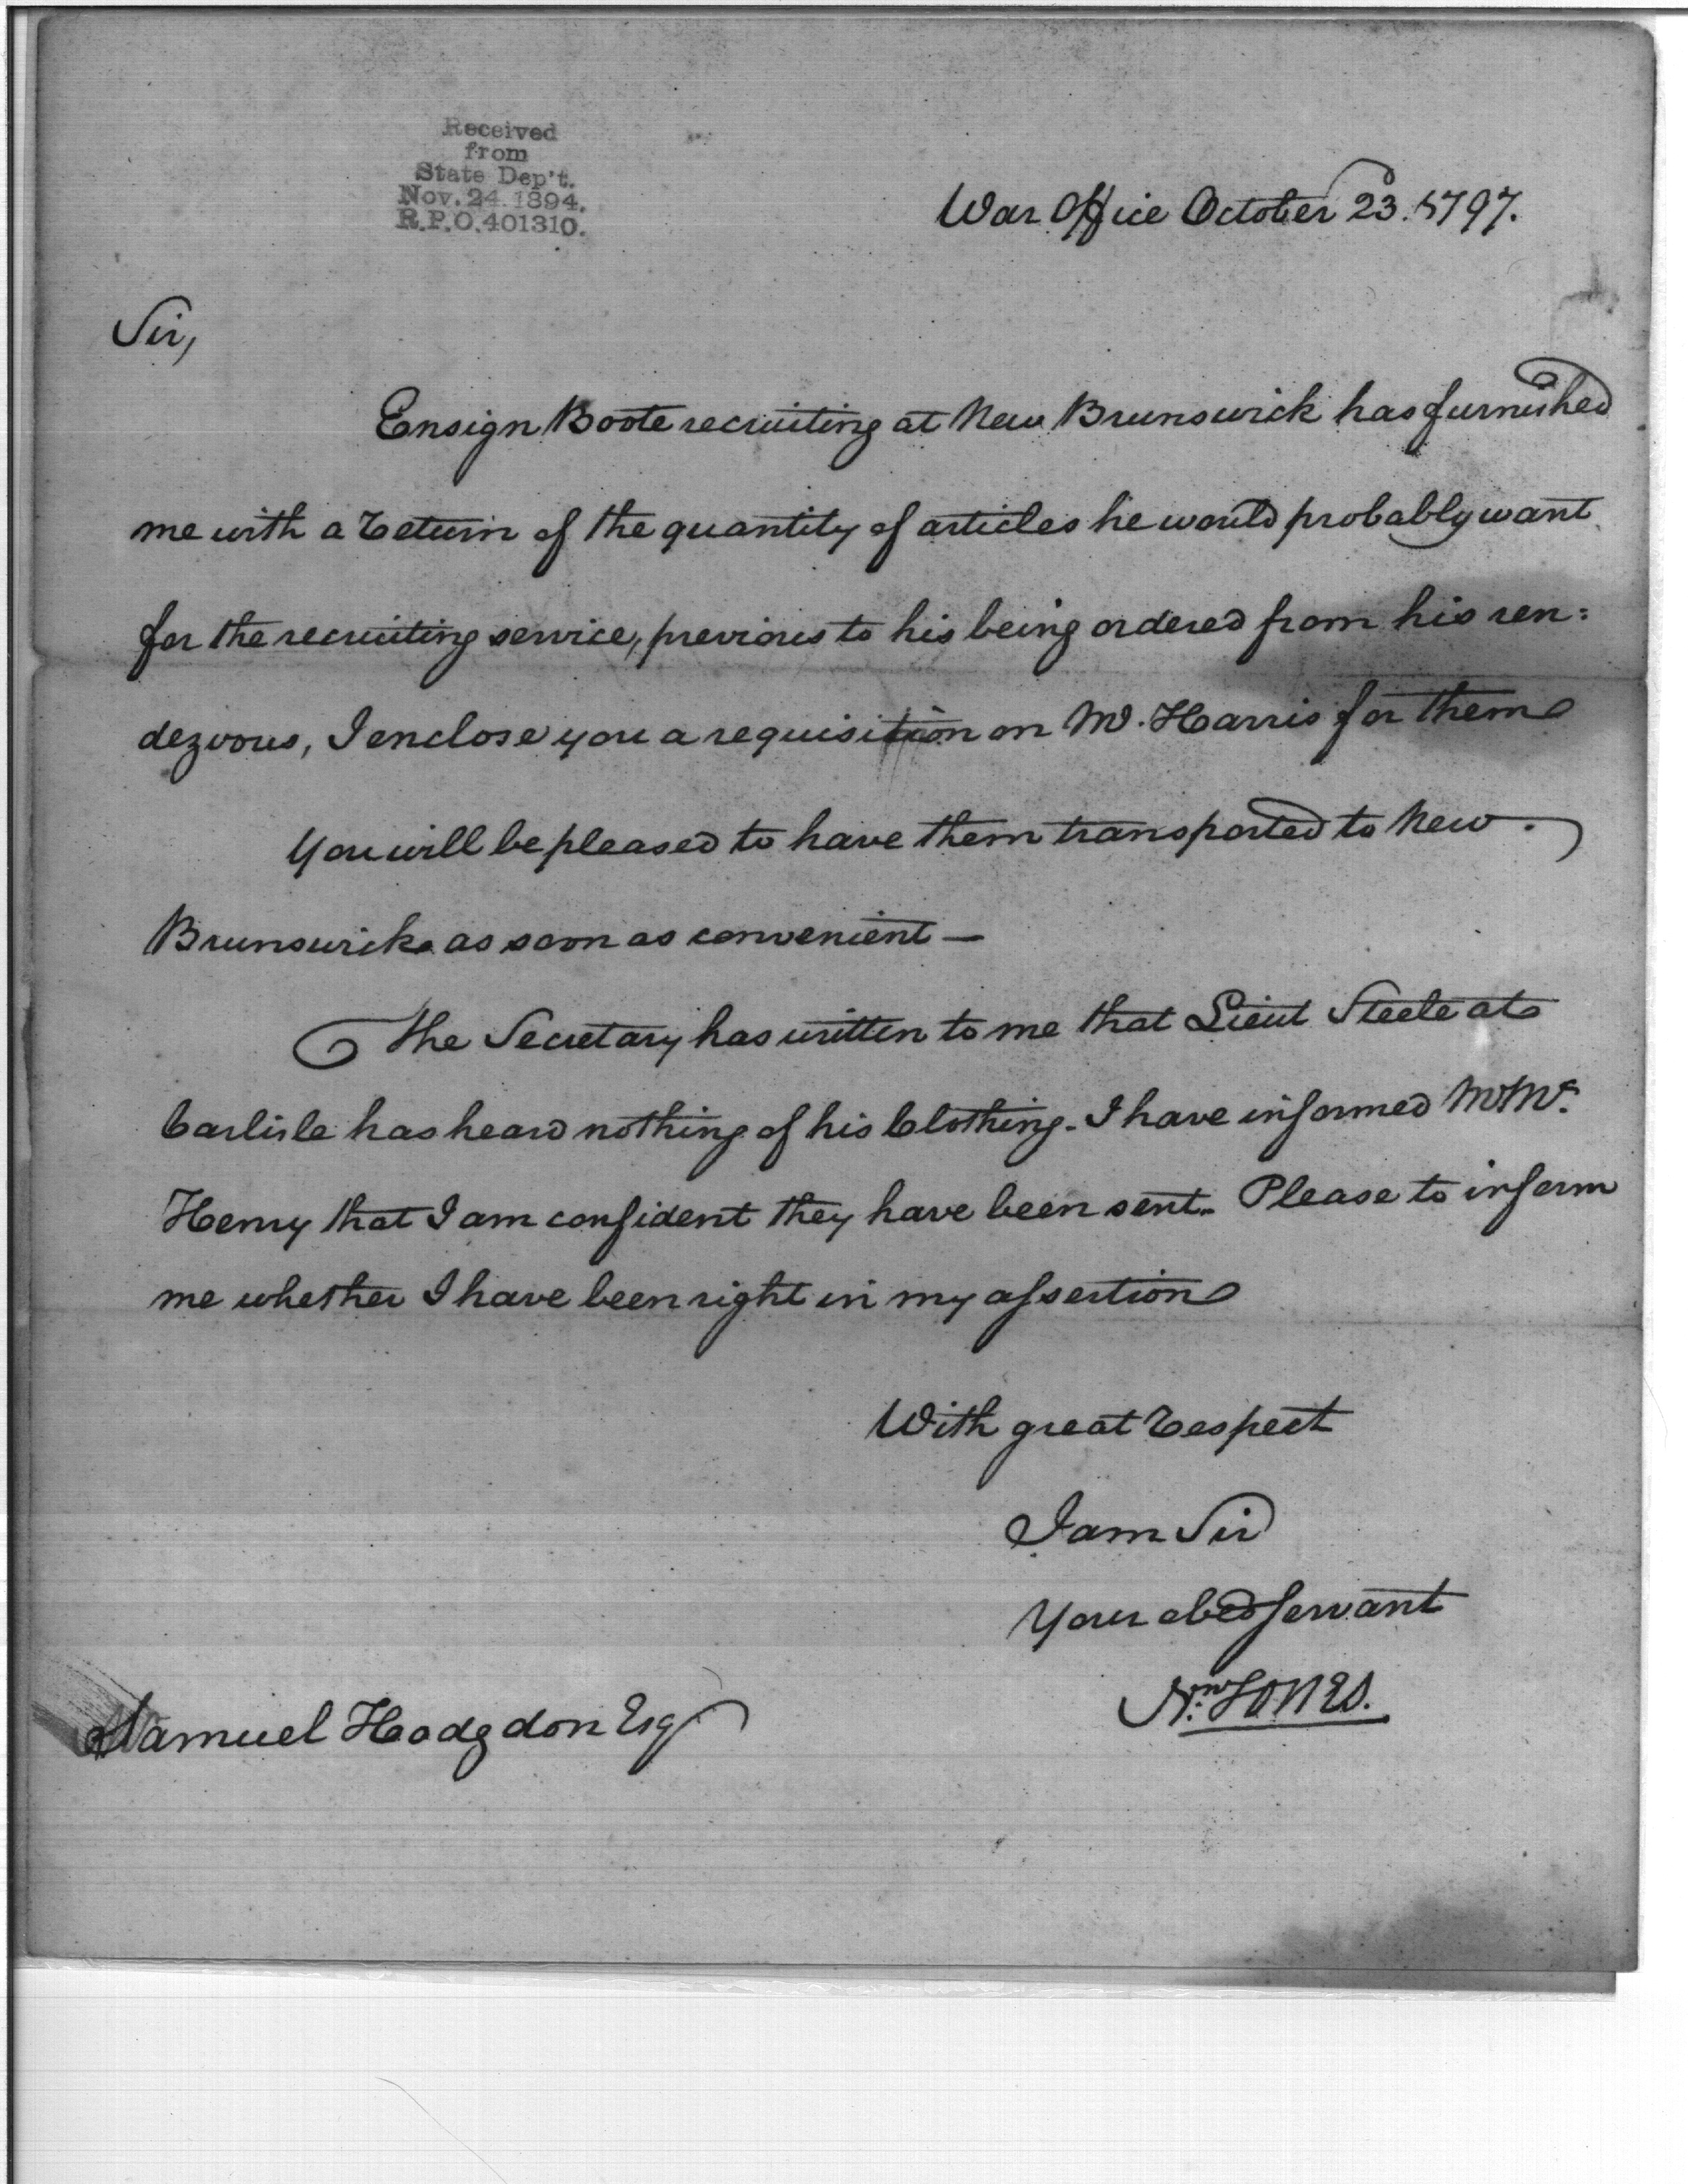 Received
from
State Dep't.
Nov. 24. 1894.
R.P.O. 401310.
War Office October 23. 1797.
Sir,
Ensign Boote recruiting at New Brunswick has furnished
me with a return of the quantity of articles he would probably want
for the recruiting service, previous to his being ordered from his ren=
dezvous, I enclose you a requisition on Mr. Harris for them
You will be pleased to have them transported to New
Brunswick as soon as convenient —
The Secretary has written to me that Lieut Steele at
Carlisle has heard nothing of his Clothing. I have informed Mr Mc.
Henry that I am confident they have been sent. Please to inform
me whether I have been right in my assertion
With great respect
I am Sir
Your obed servant
Nn. JONES.
Samuel Hodgdon Esqr